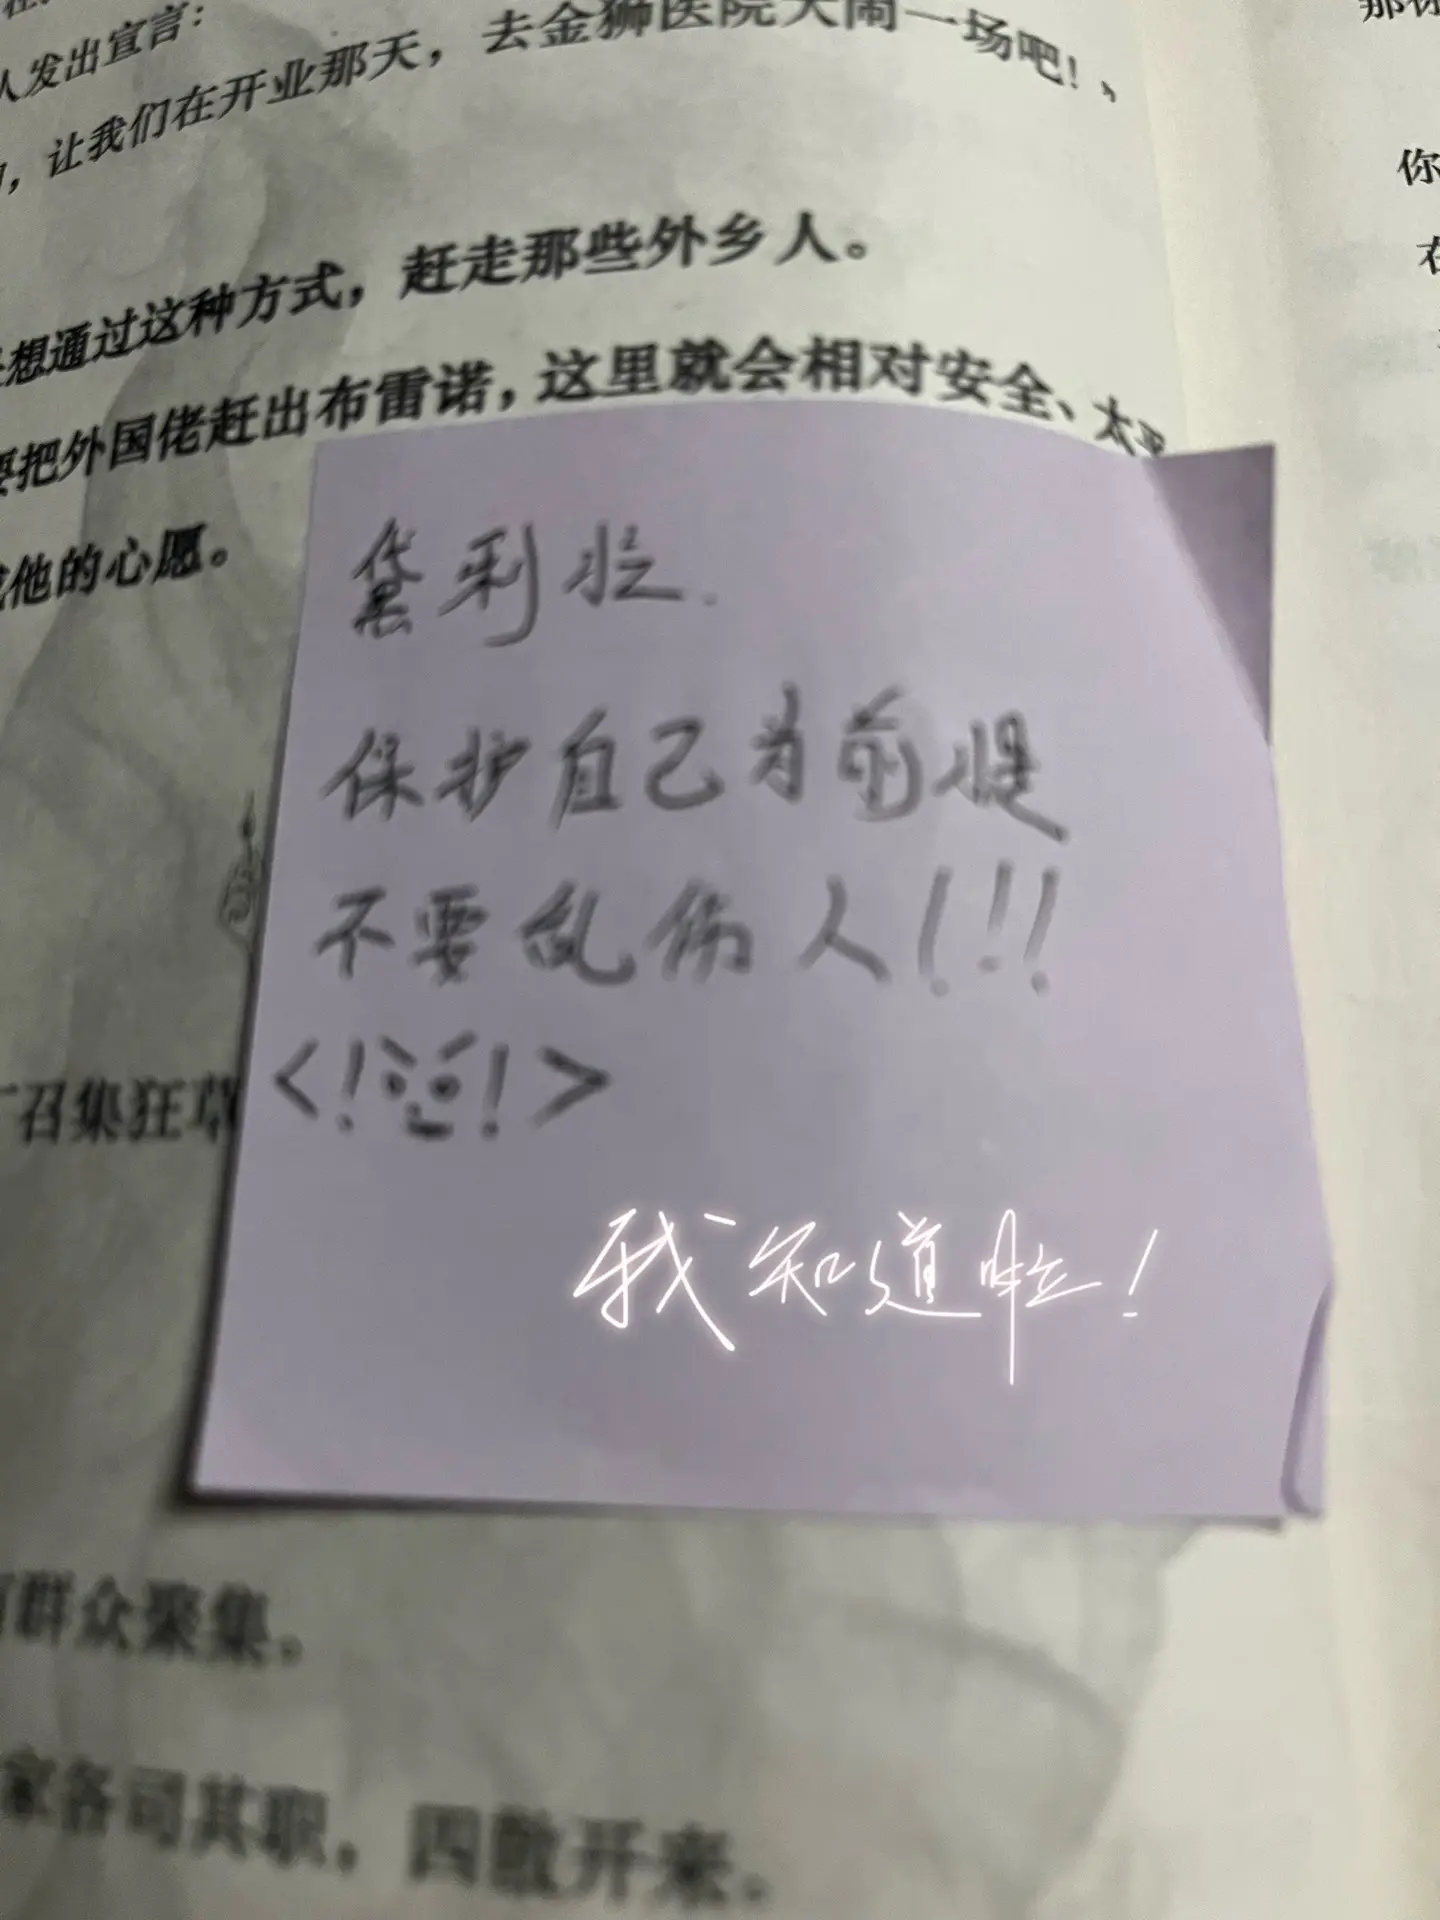 人发出宣言：
，让我们在开业那天，去金狮医院大闹一场吧！，
想通过这种方式，赶走那些外乡人。
要把外国佬赶出布雷诺，这里就会相对安全、太
他的心愿。
黛利拉.
保护自己为前提
不要乱伤人!!!
召集狂草
我知道啦！
群众聚集。
家各司其职，四散开来。
你
在